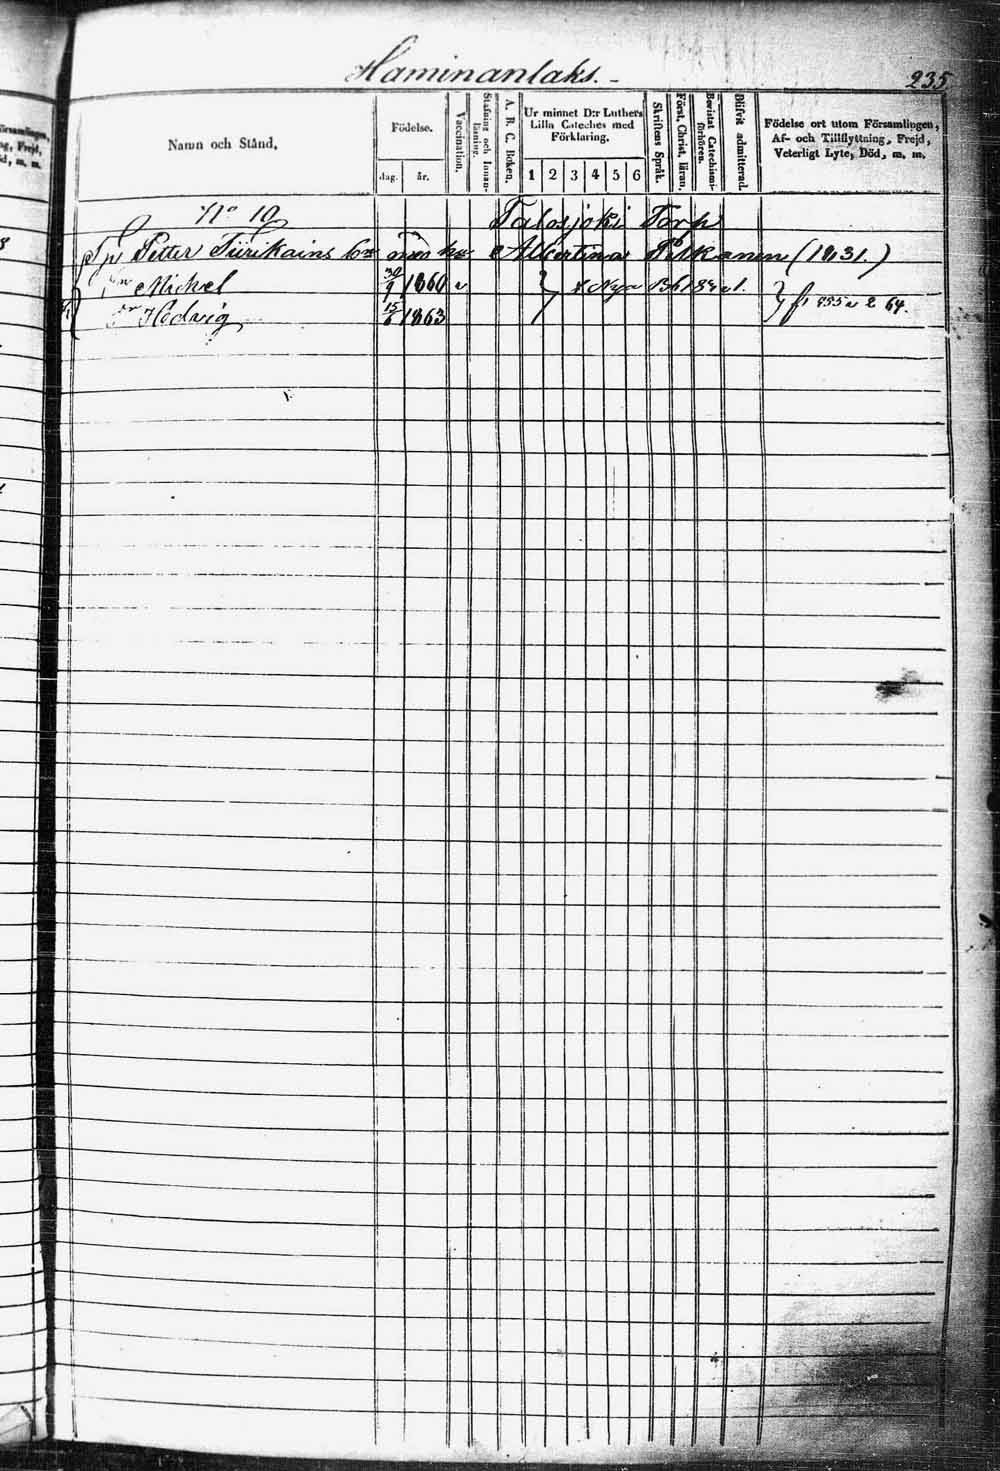 Haminanlaks. 235
Namn och Stånd, Födelse. dag. år. Vaccination. Stafning och Innanläsning. A. B. C. Boken. Ur minnet D:r Luthers Lilla Cateches med Förklaring. 1 2 3 4 5 6 Skriftens Språk. Först. Christ. läran. Bevistat Catechismi-förhören. Blifvit admitterad. Födelse ort utom Församlingen, Af- och Tillflyttning, Frejd, Veterligt Lyte, Död, m. m.
N:o 10 Talosjoki Torp
Petter Tiirikains Albertina Pitkänen (1831.)
Michel 30/1 1860 v Nya
Hedvig 15/6 1863 2 64.